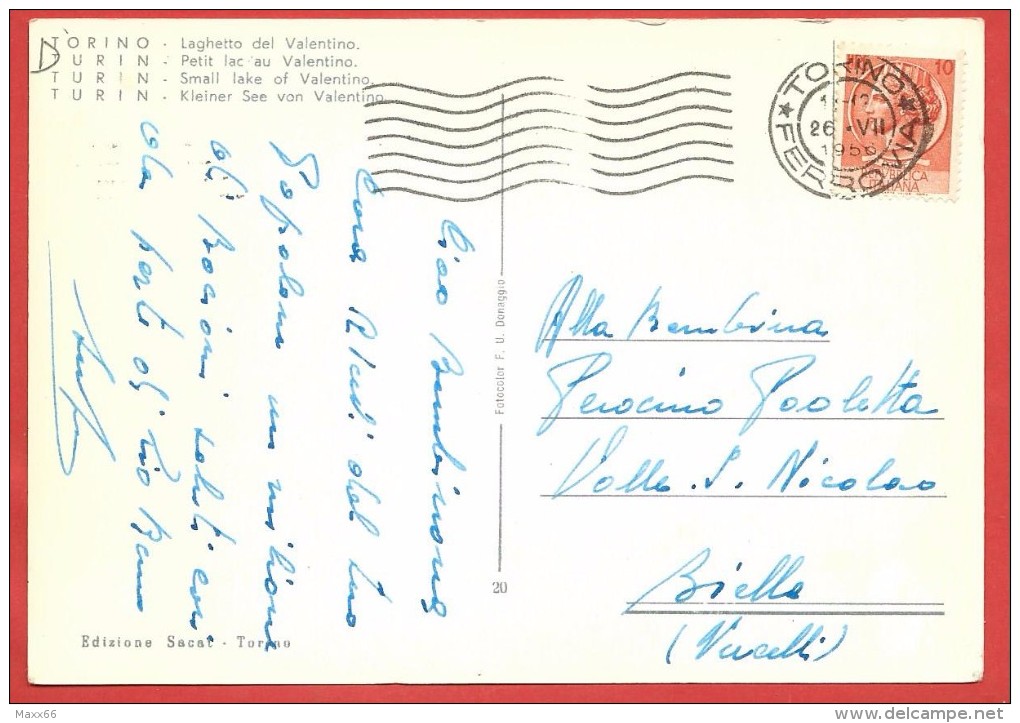 TORINO - Laghetto del Valentino.
TURIN - Petit lac au Valentino.
TURIN - Small lake of Valentino.
TURIN - Kleiner See von Valentino
TORINO
26 · VII
1956
FERROVIA
10
REPUBBLICA
ITALIANA
Ciao Bambinona
Cara
dal tuo
Popolone un milione
di Bacioni saluti cari
alla
zio
Fotocolor F. U. Donaggio
20
Alla Bambina
Perocino Paoletta
Valle S. Nicolao
Biella
(Vercelli)
Edizione Sacat - Torino
Maxx66
www.delcampe.net